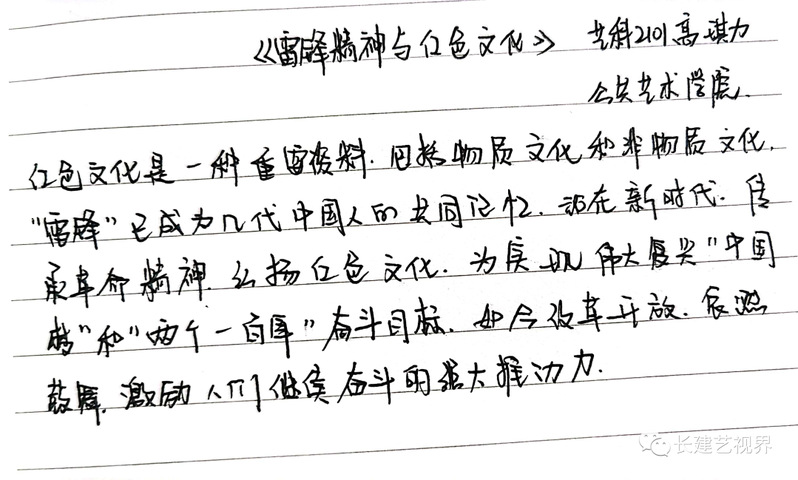 《雷锋精神与红色文化》 艺科2101高琪力
公共艺术学院.
红色文化是一种重要资料.包括物质文化和非物质文化.
“雷锋”已成为几代中国人的共同记忆.站在新时代.传
承革命精神.弘扬红色文化.为实现伟大复兴“中国
梦”和“两个一百年”奋斗目标.如今改革开放.依然
鼓舞.激励人们继续奋斗的强大推动力.
长建艺视界